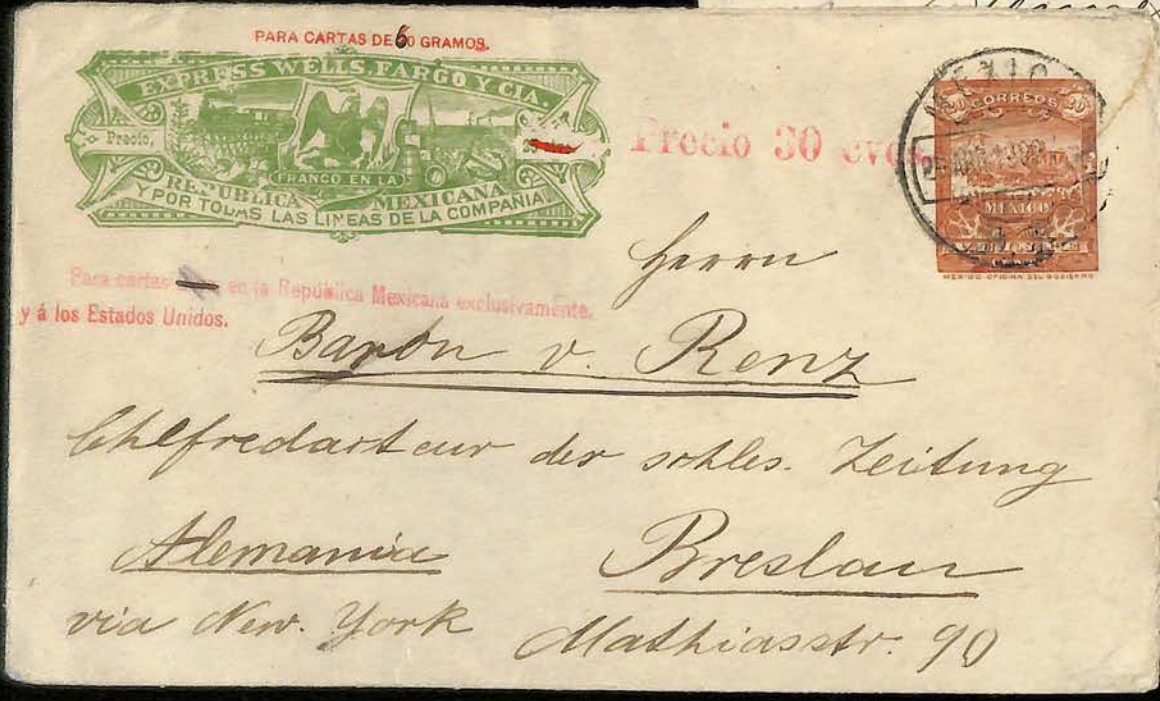 PARA CARTAS DE 60 GRAMOS.
EXPRESS WELLS, FARGO Y CIA.
Precio,
FRANCO EN LA
REPUBLICA MEXICANA
Y POR TODAS LAS LINEAS DE LA COMPAÑIA.
Precio 30 cvos
20 CORREOS 20
MEXICO
MEXICO
MEXICO OFICINA DEL GOBIERNO
Para cartas en la República Mexicana exclusivamente.
y á los Estados Unidos.
Herrn
Baron v. Renz
Chefredacteur der schles. Zeitung
Alemania
Breslau
via New. York
Mathiasstr. 90